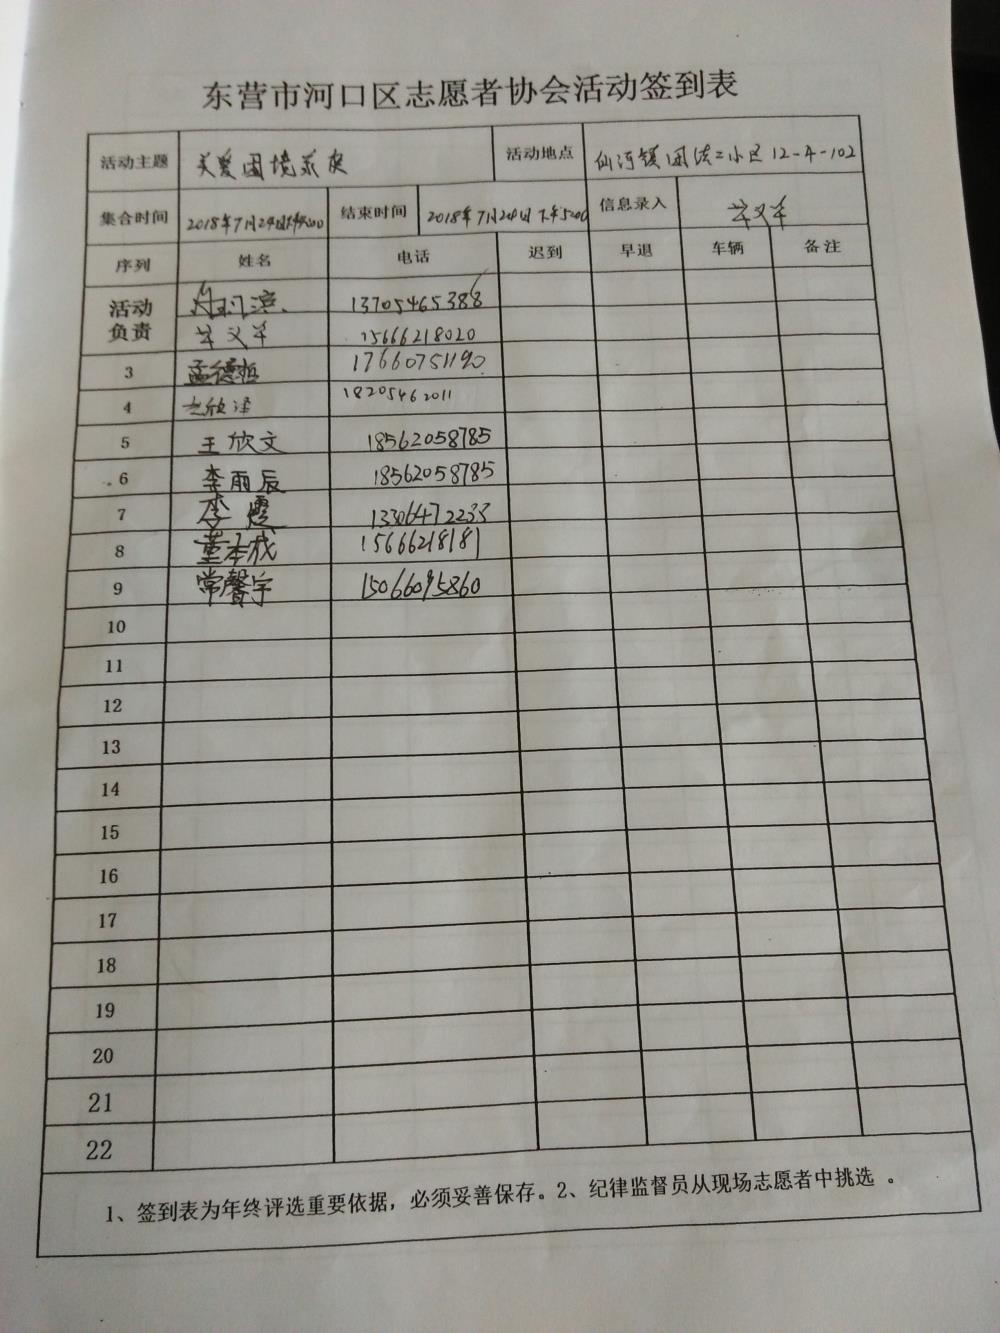 东营市河口区志愿者协会活动签到表
活动主题 关爱困境家庭 活动地点 仙河镇团结二小区12-4-102
集合时间 2018年7月24日 结束时间 2018年7月24日下午5:00 信息录入
序列 姓名 电话 迟到 早退 车辆 备注
活动负责 13705465388
15666218020
3 孟德哲 17660751190
4 18205462011
5 王欣文 18562058785
6 李雨辰 18562058785
7 李霞 13306472233
8 董本成 15666218181
9 常馨宇 15066095860
10
11
12
13
14
15
16
17
18
19
20
21
22
1、签到表为年终评选重要依据，必须妥善保存。2、纪律监督员从现场志愿者中挑选 。